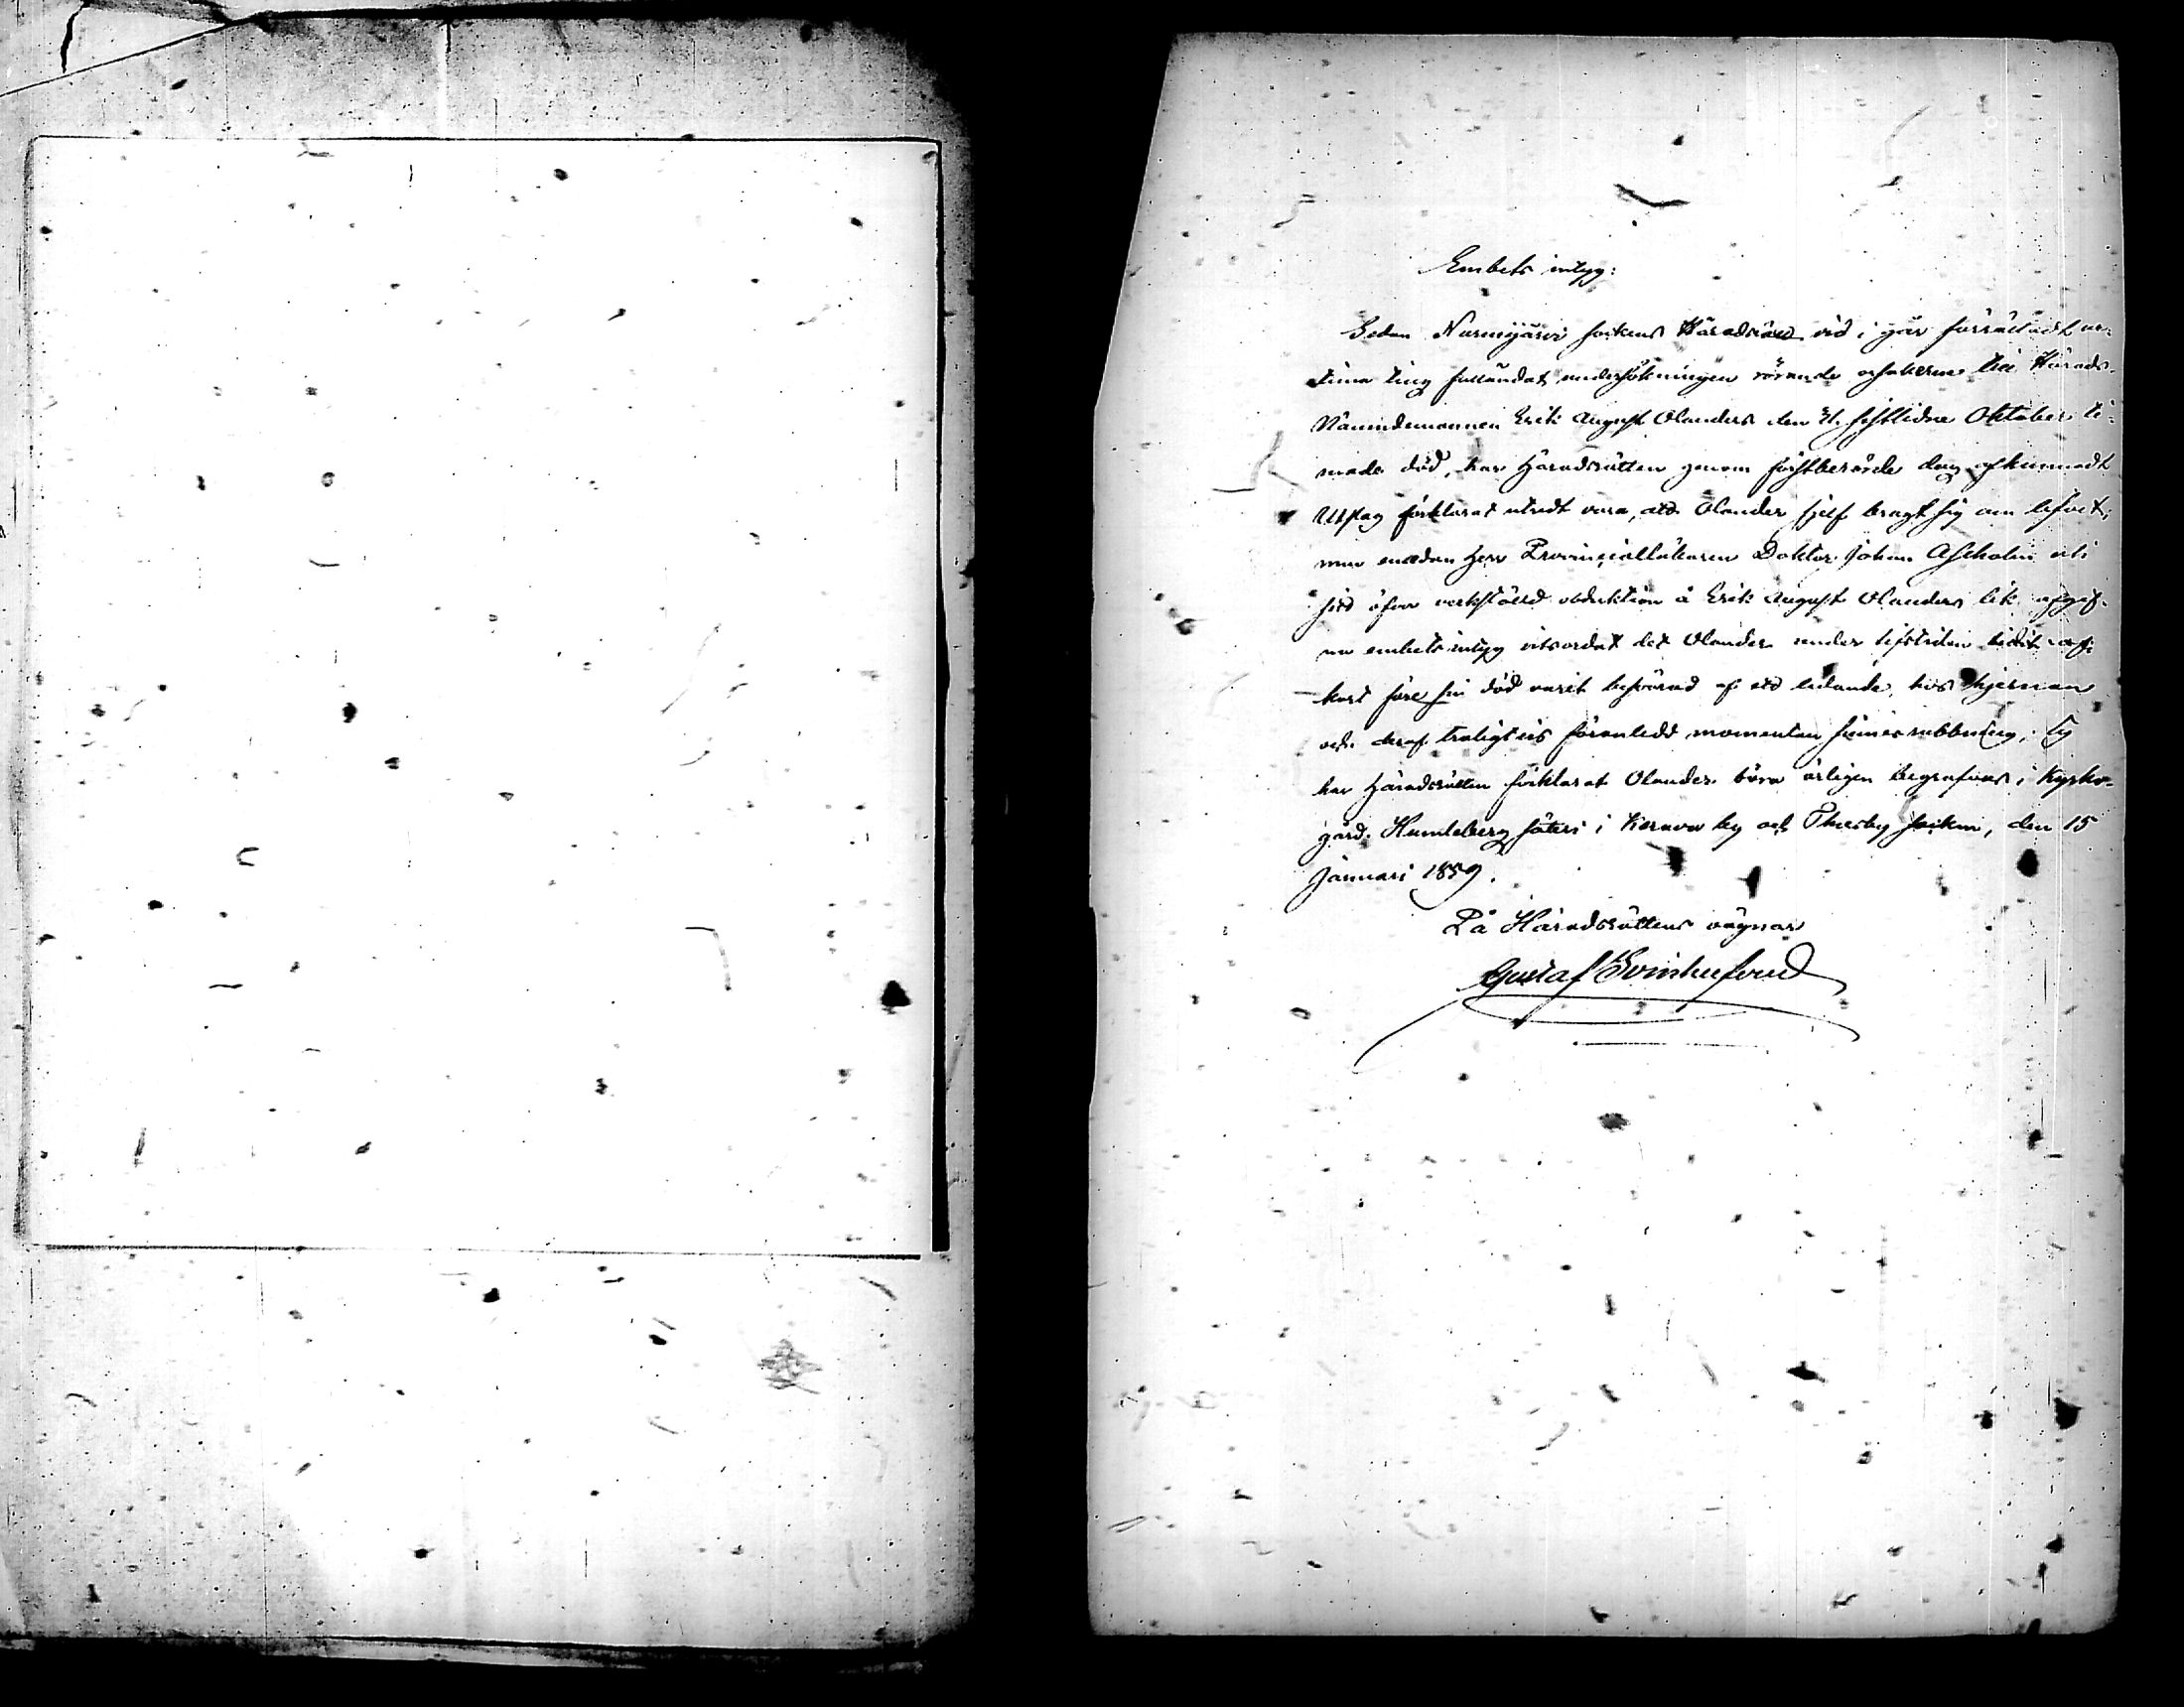 Embets intyg:
Sedan Nurmijärvi sockens Häradsrätt vid i går förrättadt ur-
tima ting fulländat undersökningen rörande orsakerne till Härads-
Nämndemannen Erik August Olanders den 31. sistlidne Oktober ti-
made död, har Häradsrätten genom förstberörde dag afkunnadt
Utslag förklarat utredt vara, att Olander sjelf bragt sig om lifvet,
men emedan Herr Provincialläkaren Doktor Johan Ascholin uti
sitt öfver verkställd obduktion å Erik August Olanders lik afgif-
na embets intyg vitsordat det Olander under lifstiden
kort före sin död varit besvärad af ett lidande hos hjernan
och deraf troligtvis föranledd momentan sinnesrubbning, ty
har Häradsrätten förklarat Olander böra ärligen begrafvas i Kyrko-
gård. Humleberg säteri i Kerava by och Thusby socken, den 15
Januari 1859.
På Häradsrättens vägnar
Gustaf Svinhufvud